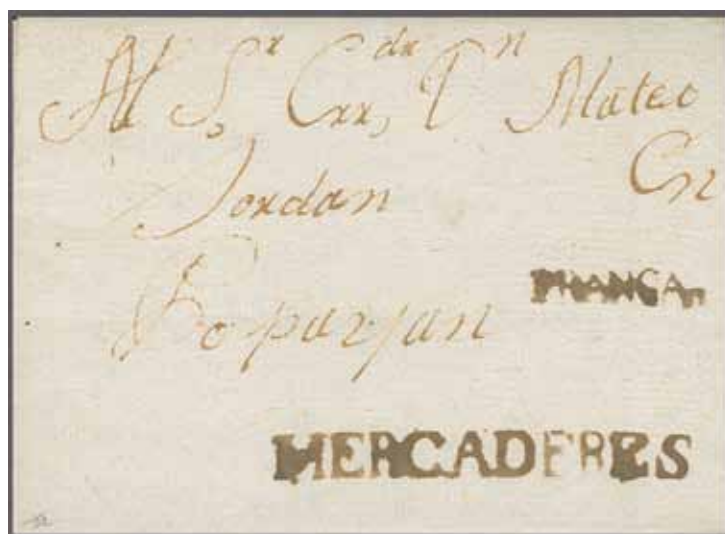 Al Sr Cxx, dx Dn Mateo
Jordan En
Popayan
FRANCA
MERCADERES